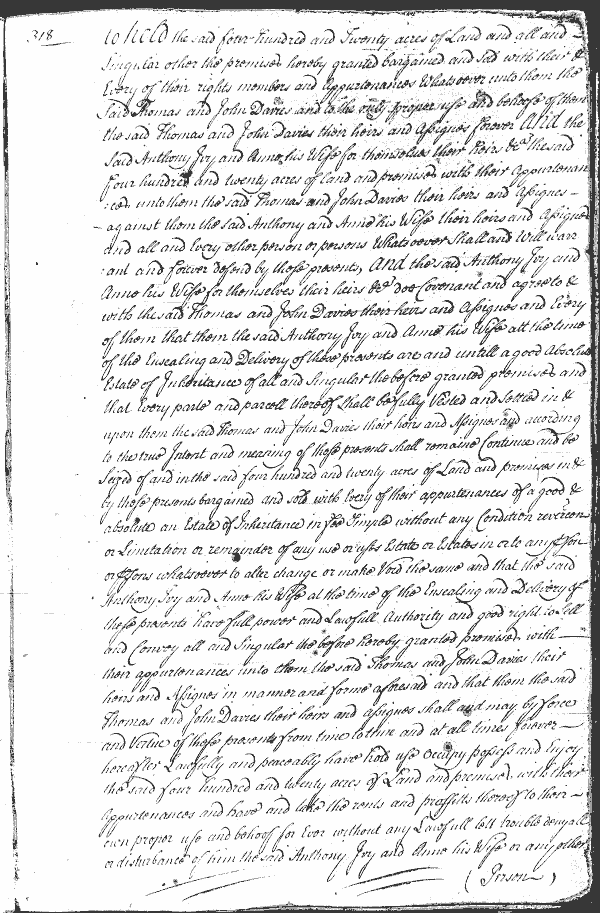 318
to hold the said four hundred and Twenty acres of Land and all and
Singular other the premises hereby granted bargained and Sold with their &
Every of their rights members and Appurtenances Whatsoever unto them the
Said Thomas and John Davies and to the only proper use and behoofe of them
the said Thomas and John Davies their heirs and Assignes forever And the
Said Anthony Ivy and Anne his Wife for themselves their heirs &c the said
four hundred and twenty acres of land and premises with their Appurtenan
:ces unto them the said Thomas and John Davies their heirs and Assignes -
- against them the said Anthony and Anne his Wife their heirs and Assignes
and all and Every other person or persons Whatsoever Shall and Will warr
:ant and forever defend by these presents, And the said Anthony Ivy and
Anne his Wife for themselves their heirs &c doe Covenant and agree to &
with the said Thomas and John Davies their heirs and Assignes and Every
of them that them the said Anthony Ivy and Anne his Wife att the time
of the Ensealing and Delivery of these presents are and untill a good Absolute
Estate of Inheritance of all and Singular the before granted premises and
that Every parte and parcell thereof Shall be fully Vested and Settled in &
upon them the said Thomas and John Davies their heirs and Assignes and according
to the true Intent and meaning of these presents shall remaine Continue and be
Seized of and in the said four hundred and twenty acres of Land and premises in &
by these presents bargained and sold with Every of their appurtenances of a good &
absolute an Estate of Inheritance in fee Simple without any Condition revercon
or Limitation or remainder of any use or uses Estate or Estates in or to any pson
or psons whatsoever to alter change or make Void the same and that the said
Anthony Ivy and Anne his Wife at the time of the Ensealing and Delivery of
these presents have full power and Lawfull Authority and good right to Sell
and Convey all and Singular the before hereby granted premises with
their appurtenances unto them the said Thomas and John Davies their
heirs and Assignes in manner and forme aforesaid and that them the said
Thomas and John Davies their heirs and assignes shall and may by force
and Virtue of these presents from time to time and at all times forever
hereafter Lawfully and peaceably have hold use Occupy possess and Enjoy
the said four hundred and twenty acres of Land and premises with their
Appurtenances and have and take the rents and proffitts thereof to their -
own proper use and behoof for Ever without any Lawfull lett trouble denyall
or disturbance of him the said Anthony Ivy and Anne his Wife or any other
( Person )